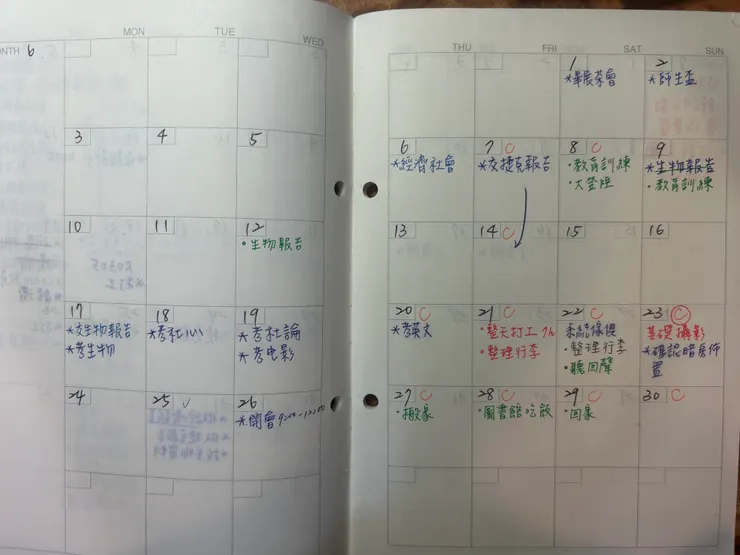 MONTH 6
MON TUE WED THU FRI SAT SUN
1 2
*畢展茶會 *師生盃
3 4 5 6 7 C 8 C 9
*經濟社會 *交捷克報告 ·教育訓練 *生物報告
·大登陸 ·教育訓練
10 11 12 13 14 C 15 16
·生物報告
17 18 19 20 C 21 C 22 C 23 C
*交生物報告 *考社心 *考社論 *考英文 ·整天打工 基礎攝影
*考生物 *考电影 ·整理行李 ·整理行李 *確認暗房佈置
·聽回聲
24 25 ✓ 26 27 C 28 C 29 C 30 C
*開會 9:00-12:00 ·搬家 ·圖書館吃飯 ·回家